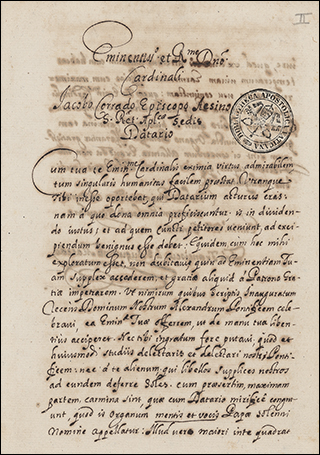 II
Eminentmo et Rmo Dno
Cardinali
Jacobo Corrado Episcopo Æsino
S. Ret Aplcæ Sedis
Datario
BIBLIOTHECA APOSTOLICA VATICANA
Cum tua te Eminme Cardinalis eximia virtus admirabilem
tum singularis humanitas facilem præstat Utranque
tibi inesse oportebat, qui Datarium acturus eras;
nam à quo dona omnia proficiscuntur, is in dividen
do iustus; et ad quem cuncti petitores veniunt, ad exci
piendum benignus esse debet. Equidem cum hoc mihi
exploratum esset, non dubitavi quin ad Eminentiam Tu
am supplex accederem, et gratiæ aliquid à Patrono Gre
tia impetrarem. Ut nimirum quibus scriptis Inauguratum
recens Dominum Nostrum Alexandrum Pontificem cele
bravi, ea Eminæ Tuæ offerrem, ut de manu tua liben
tius acciperet. Nec tibi ingratum fore putavi, quod et
huiusmodi studiis delectaris et delectari nosti Ponti
ficem; nec à te alienum, qui libellos supplices nostros
ad eundem deferre soles. cum præsertim, maximam
partem, carmina sint, quæ cum Datario mirificè congru
unt, quod is Organum mentis et vocis Papæ solenni
Nomine appellatur. Illud vero maiori inte quadrat